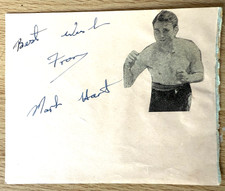 Best Wish
From
Mark Hart